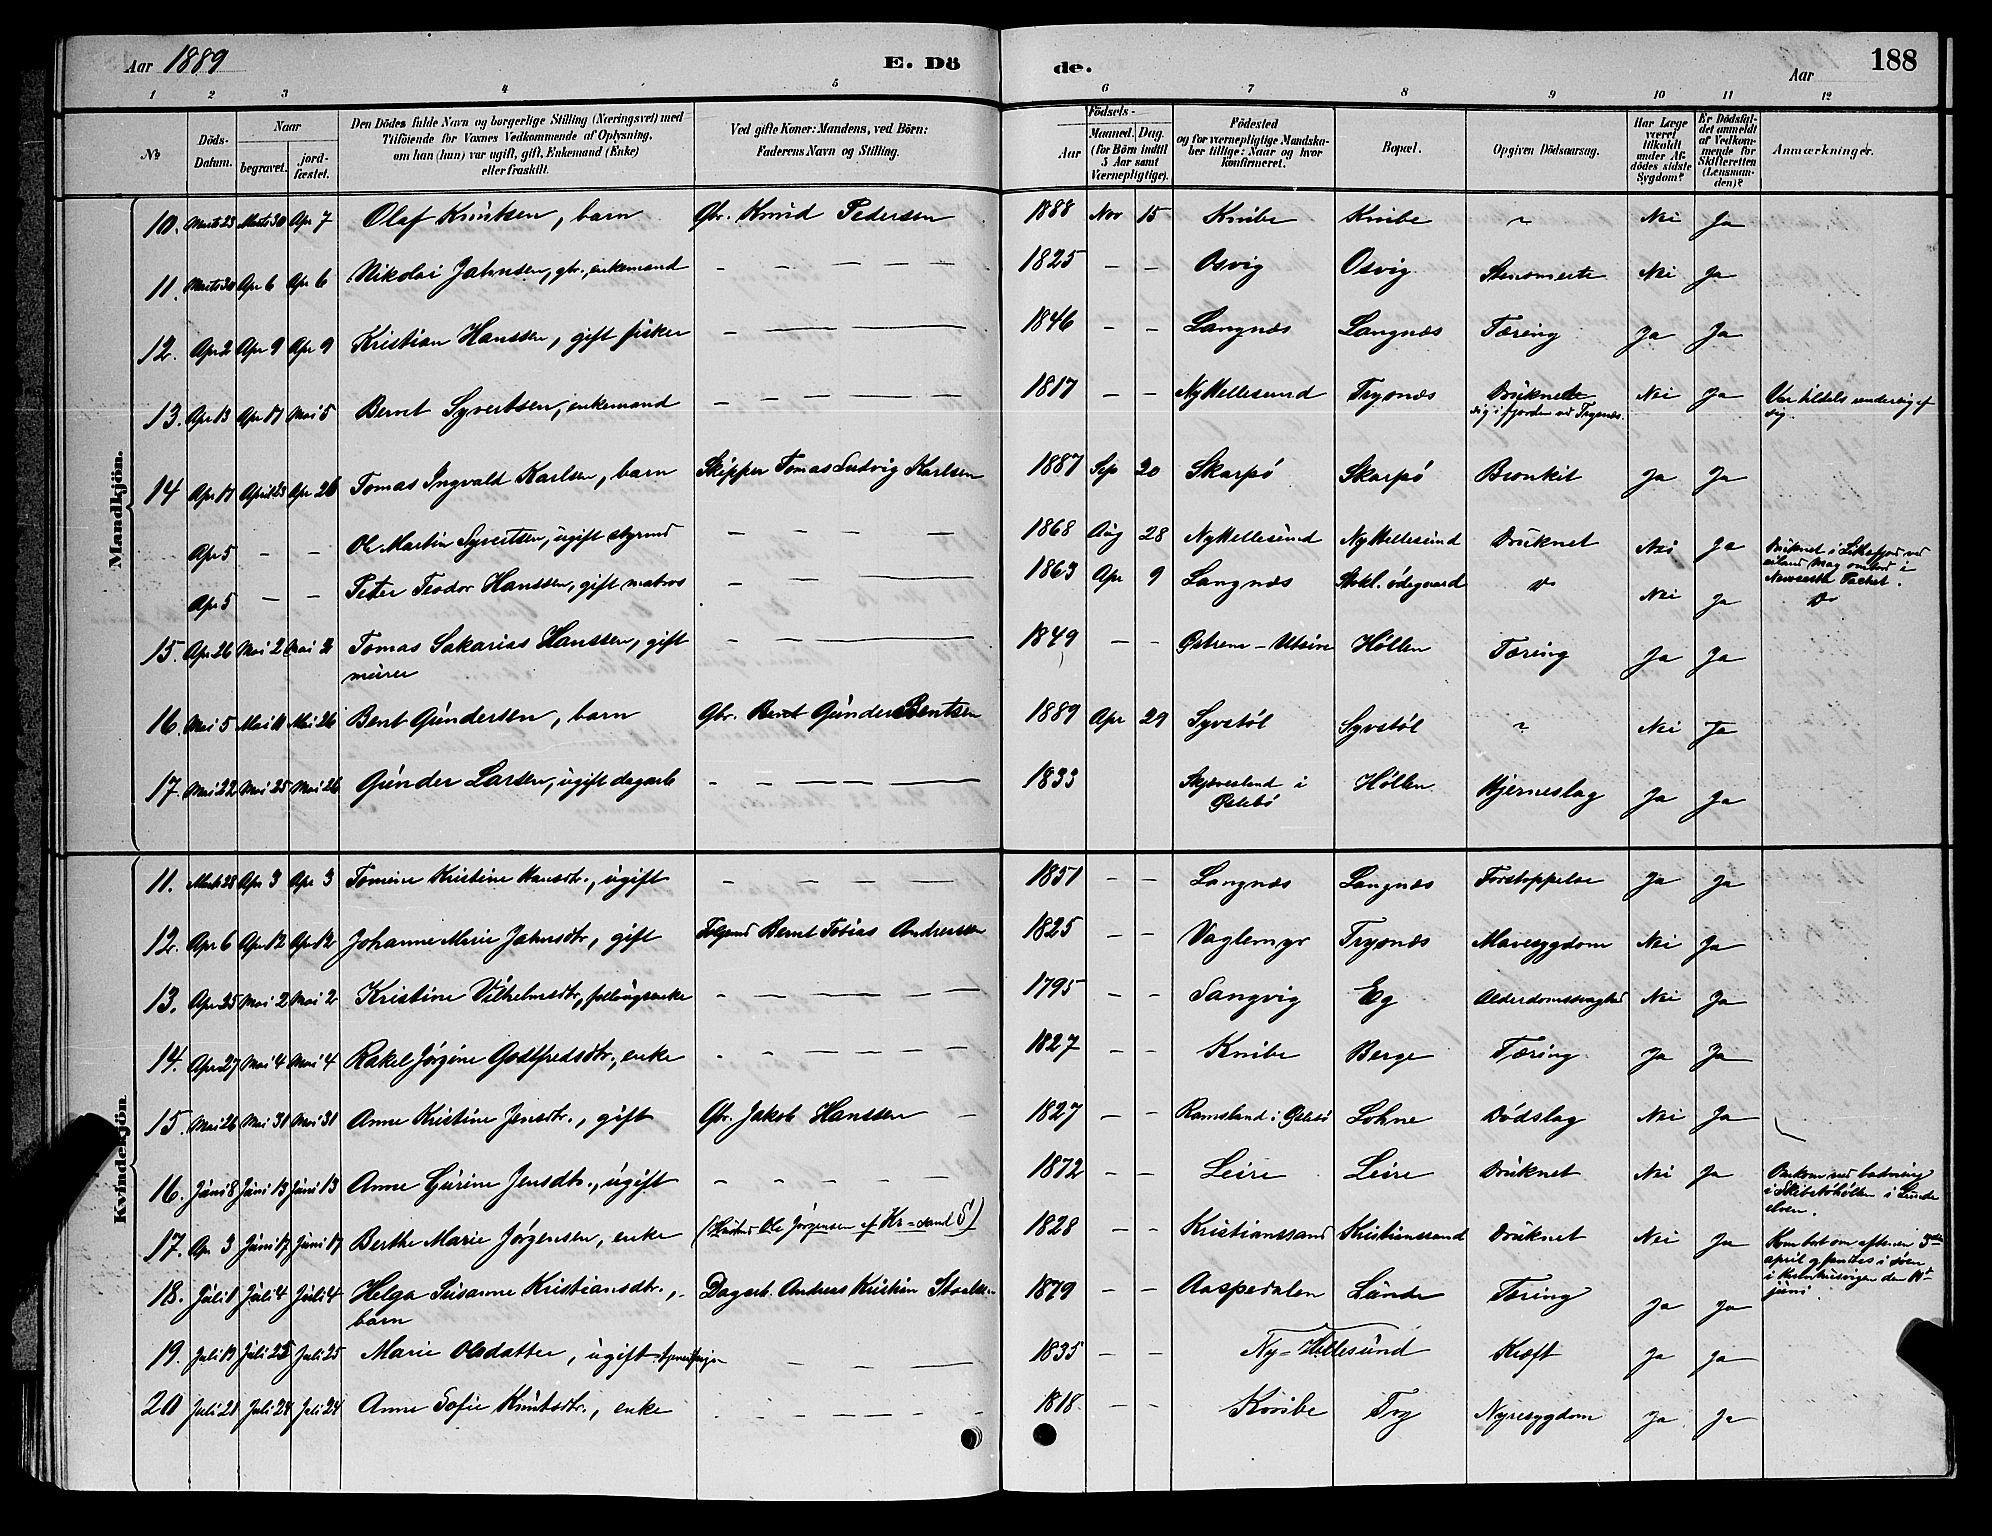 Aar 1889
E. Dö
de.
Aar
188
1 2 3 4 5 6 7 8 9 10 11 12
№
Döds-
Datum.
Naar
begravet.
jord-
fæstet.
Den Dödes fulde Navn og borgerlige Stilling (Næringsvei) med
Tilföiende for Voxnes Vedkommende af Oplysning,
om han (hun) var ugift, gift, Enkemand (Enke)
eller fraskilt.
Ved gifte Koner: Mandens, ved Börn:
Faderens Navn og Stilling.
Födsels-
Aar
Maaned. Dag.
(for Börn indtil
5 Aar samt
Værnepligtige).
Födested
og for værnepligtige Mandska-
ber tillige: Naar og hvor
Konfirmeret.
Bopæl.
Opgiven Dödsaarsag.
Har Læge
været
tilkaldt
under Af-
dödes sidste
Sygdom?
Er Dödsfal-
det anmeldt
af Vedkom-
mende for
Skifteretten
(Lensman-
den)?
Anmærkninger.
Mandkjön.
10. Marts 23 Marts 30 Apr 7 Olaf Knutsen, barn Gbr. Knud Pedersen 1888 Nov 15 Knibe Knibe ~ Nei Ja
11. Marts 30 Apr 6 Apr 6 Nikolai Jahnsen, gbr., enkemand – – – – – – 1825 – – Osvig Osvig Nei Ja
12. Apr 2 Apr 9 Apr 9 Kristian Hanssen, gift fisker – – – – – 1846 – – Langnæs Langnæs Tæring Ja Ja
13. Apr 13 Apr 17 Mai 5 Bernt Syvertsen, enkemand – – – – – 1817 – – Ny Hellesund Trysnæs Druknede Nei Ja Var tildels
sig i fjorden ved Trysnæs. sig.
14 Apr 17 April 23 Apr 26 Tomas Ingvald Karlsen, barn Skipper Tomas Ludvig Karlsen 1887 Sep 20 Skarpö Skarpö Bronkit Ja Ja
Apr 5 – – Ole Martin Syvertsen, ugift styrmd – – – – 1868 Aug 28 Ny Hellesund Ny Hellesund Druknet Nei Ja Druknet i
ombord i
Apr 5 – – Peter Teodor Hanssen, gift matros – – – – 1863 Apr 9 Langnæs ødegaard Do Nei Ja Do
15. Apr 26 Mai 2 Mai 2 Tomas Sakarias Hanssen, gift – – – 1849 – – Østrem – Høllen Tæring Ja Ja
murer
16. Mai 5 Mai 11 Mai 26 Bent Gundersen, barn Gbr. Bernt Gunder Bentsen 1889 Apr 29 Syvstöl Syvstöl ~ Nei Ja
17. Mai 22 Mai 25 Mai 26 Gunder Larsen, ugift dagarb – – – – – 1833 Skjævesland i Høllen Hjerneslag Ja Ja
Øslebö
Kvindekjön
11. Marts 28 Apr 3 Apr 3 Tomine Kristine Hansdtr., ugift – – – – – 1851 – – Langnæs Langnæs Forstoppelse Ja Ja
12. Apr 6 Apr 12 Apr 12 Johanne Marie Jahnsdtr, gift Bernt Tobias Andreassen 1825 – – Vaglemyr Trysnæs Mavesygdom Nei Ja
13. Apr 25 Mai 2 Mai 2 Kristine Vilhelmsdtr, – – – – – – 1795 – – Sangvig Eg Alderdomssvaghed Nei Ja
14. Apr 27 Mai 4 Mai 4 Rakel Jørgine Godtfredsdtr., enke – – – – – – 1827 – – Knibe Berge Tæring Ja Ja
15. Mai 26 Mai 31 Mai 31 Anne Kristine Jensdtr., gift Gbr. Jakob Hanssen – 1827 – – Ramsland i Øslebö Lohne Dödslag Nei Ja
16. Juni 8 Juni 13 Juni 13 Anne Gurine Jensdtr., ugift – – – – – 1872 – – Leire Leire Druknet Nei Ja Omkom ved badning
i Skibstöhöllen i Lunde
elven.
17. Apr 3 Juni 17 Juni 17 Berthe Marie Jörgensen, enke Ole Jörgensen af Kr-sand S) 1828 – – Kristianssand Kristianssand Druknet Nei Ja Kom bort om aftenen 3die
april og fandtes i søen
den 14de
juni
18. Juli 1 Juli 4 Juli 4 Helga Susanne Kristiansdtr., Dagarb. Andreas Kristian 1879 – – Aaspedalen Lunde Tæring Ja Ja
barn
19. Juli 19 Juli 25 Juli 25 Marie Olsdatter, ugift – – – – 1835 – – Ny-Hellesund Kræft Ja Ja
20 Juli 21 Juli 24 Juli 24 Anne Sofie Knutsdtr., enke – – – – – – 1818 – – Knibe Try Nyresygdom Ja Ja